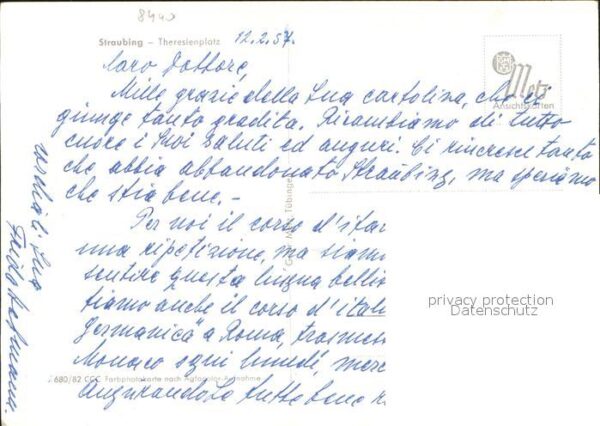 8440
Straubing – Theresienplatz 12.2.57.
Caro Dottore,
Mille grazie della Sua cartolina, che ci
giunge tanto gradita. Ricambiamo di tutto
cuore i Suoi saluti ed auguri. Ci rincresce tanto
che abbia abbandonato Straubing, ma speriamo
che stia bene. –
Per noi il corso d'ital
una ripetizione, ma siam
sentire questa lingua bellis
tiamo anche il corso d'itali
Germanica" a Roma, trasmes
Monaco ogni lunedì, merc
Augurandole tutto bene
Sua
Metz
Ansichtskarten
Tübingen
680/82 CCC Farbphotokarte nach Agfacolor-Aufnahme
privacy protection
Datenschutz